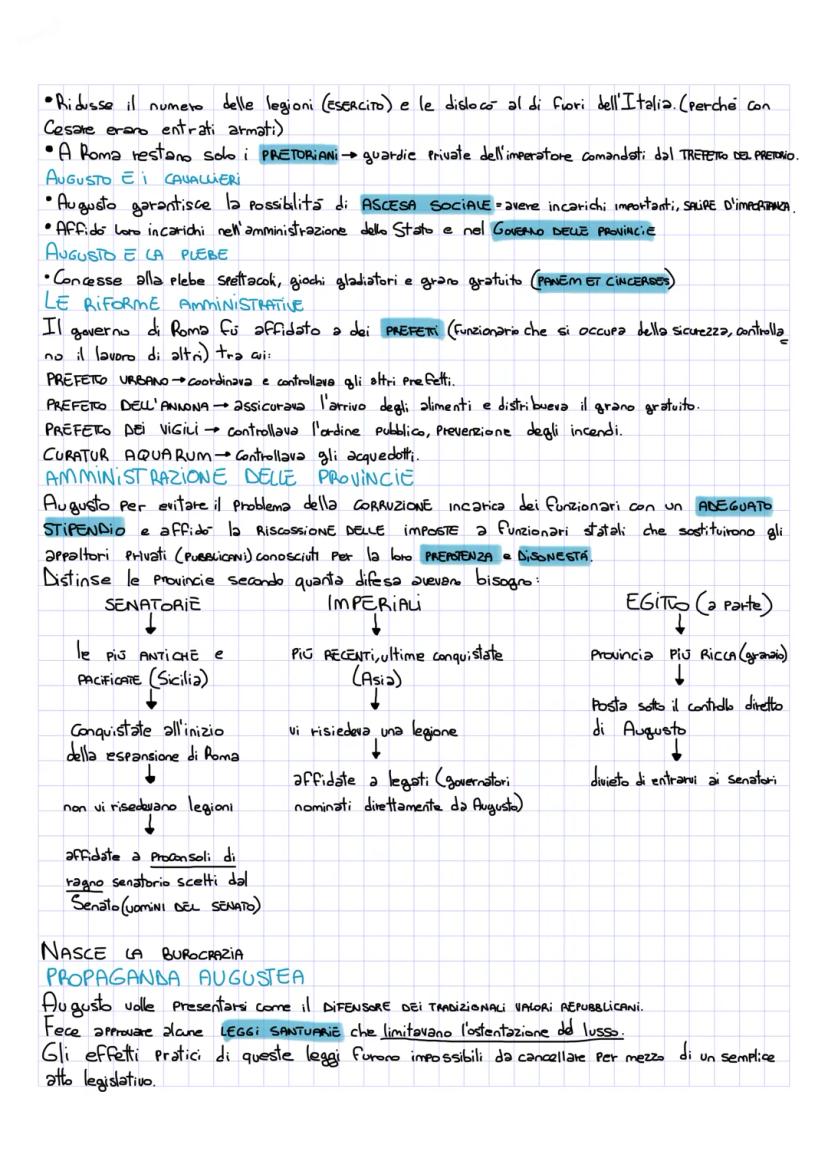 • Ridusse il numero delle legioni (ESERCITO) e le dislocò al di fuori dell'Italia. (perché con
Cesare erano entrati armati)
• A Roma restano solo i PRETORIANI → guardie private dell'imperatore comandati dal TREFETTO DEL PRETORIO.
AUGUSTO E i CAVALLIERI
• Augusto garantisce la possibilità di ASCESA SOCIALE = avere incarichi importanti, SALIRE D'IMPORTANZA.
• Affidò loro incarichi nell'amministrazione dello Stato e nel GOVERNO DELLE PROVINCIE
AUGUSTO E LA PLEBE
• Concesse alla plebe spettacoli, giochi gladiatori e grano gratuito (PANEM ET CINCERSES)
LE RIFORME AMMINISTRATIVE
Il governo di Roma fù affidato a dei PREFETTI (funzionario che si occupa della sicurezza, controlla
no il lavoro di altri) tra cui:
PREFETTO URBANO → coordinava e controllava gli altri prefetti.
PREFETTO DELL'ANNONA → assicurava l'arrivo degli alimenti e distribueva il grano gratuito.
PREFETTO DEI VIGILI → controllava l'ordine pubblico, prevenzione degli incendi.
CURATUR AQUARUM → controllava gli acquedotti.
AMMINISTRAZIONE DELLE PROVINCIE
Augusto per evitare il problema della CORRUZIONE incarica dei funzionari con un ADEGUATO
STIPENDIO e affidò la RISCOSSIONE DELLE IMPOSTE a funzionari statali che sostituirono gli
appaltori privati (PUBBLICANI) conosciuti per la loro PREPOTENZA e DISONESTÁ.
Distinse le provincie secondo quanta difesa avevano bisogno:
SENATORIE IMPERIALI EGITTO (a parte)
↓ ↓ ↓
le PIÙ ANTICHE e PIÙ RECENTI, ultime conquistate Provincia PIÙ RICCA (granaio)
PACIFICATE (Sicilia) (Asia) ↓
↓ ↓ Posta sotto il controllo diretto
Conquistate all'inizio vi risiedeva una legione di Augusto
della espansione di Roma ↓ ↓
↓ affidate a legati (governatori divieto di entrarvi ai senatori
non vi risedevano legioni nominati direttamente da Augusto)
↓
affidate a proconsoli di
ragno senatorio scelti dal
Senato (UOMINI DEL SENATO)
NASCE LA BUROCRAZIA
PROPAGANDA AUGUSTEA
Augusto volle presentarsi come il DIFENSORE DEI TRADIZIONALI VALORI REPUBBLICANI.
Fece approvare alcune LEGGI SANTUARIE che limitavano l'ostentazione del lusso.
Gli effetti pratici di queste leggi furono impossibili da cancellare per mezzo di un semplice
atto legislativo.